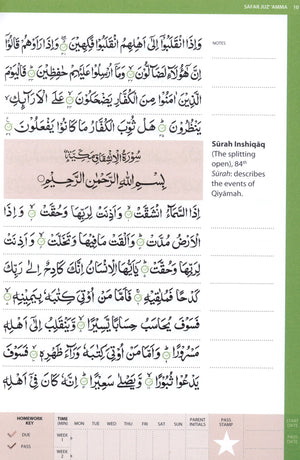 SAFAR JUZ 'AMMA 10
وَإِذَا انْقَلَبُوْٓا إِلٰٓى أَهْلِهِمُ انْقَلَبُوْا فَكِهِيْنَ ۝ وَإِذَا رَأَوْهُمْ قَالُوْٓا
إِنَّ هٰٓؤُلَآءِ لَضَآلُّوْنَ ۝ وَمَآ أُرْسِلُوْا عَلَيْهِمْ حٰفِظِيْنَ ۝ فَالْيَوْمَ
الَّذِيْنَ اٰمَنُوْا مِنَ الْكُفَّارِ يَضْحَكُوْنَ ۝ عَلَى الْأَرَآئِكِ
يَنْظُرُوْنَ ۝ هَلْ ثُوِّبَ الْكُفَّارُ مَا كَانُوْا يَفْعَلُوْنَ ۝
سُوْرَةُ الْاِنْشِقَاقِ مَكِّيَّةٌ
بِسْمِ اللّٰهِ الرَّحْمٰنِ الرَّحِيْمِ
إِذَا السَّمَآءُ انْشَقَّتْ ۝ وَأَذِنَتْ لِرَبِّهَا وَحُقَّتْ ۝ وَإِذَا
الْأَرْضُ مُدَّتْ ۝ وَأَلْقَتْ مَا فِيْهَا وَتَخَلَّتْ ۝ وَأَذِنَتْ
لِرَبِّهَا وَحُقَّتْ ۝ يٰٓأَيُّهَا الْإِنْسَانُ إِنَّكَ كَادِحٌ إِلٰى رَبِّكَ
كَدْحًا فَمُلٰقِيْهِ ۝ فَأَمَّا مَنْ أُوْتِيَ كِتٰبَهٗ بِيَمِيْنِهٖ ۝
فَسَوْفَ يُحَاسَبُ حِسَابًا يَّسِيْرًا ۝ وَيَنْقَلِبُ إِلٰٓى أَهْلِهٖ
مَسْرُوْرًا ۝ وَأَمَّا مَنْ أُوْتِيَ كِتٰبَهٗ وَرَآءَ ظَهْرِهٖ ۝ فَسَوْفَ
يَدْعُوْا ثُبُوْرًا ۝ وَيَصْلٰى سَعِيْرًا ۝ إِنَّهٗ كَانَ فِيْٓ أَهْلِهٖ
NOTES
Sūrah Inshiqāq
(The splitting
open), 84th
Sūrah: describes
the events of
Qiyāmah.
HOMEWORK KEY
DUE
PASS
TIME (MIN) MON TUE WED THU FRI SAT SUN PARENT INITIALS
WEEK 1
WEEK 2
PASS STAMP
START DATE
PASS DATE